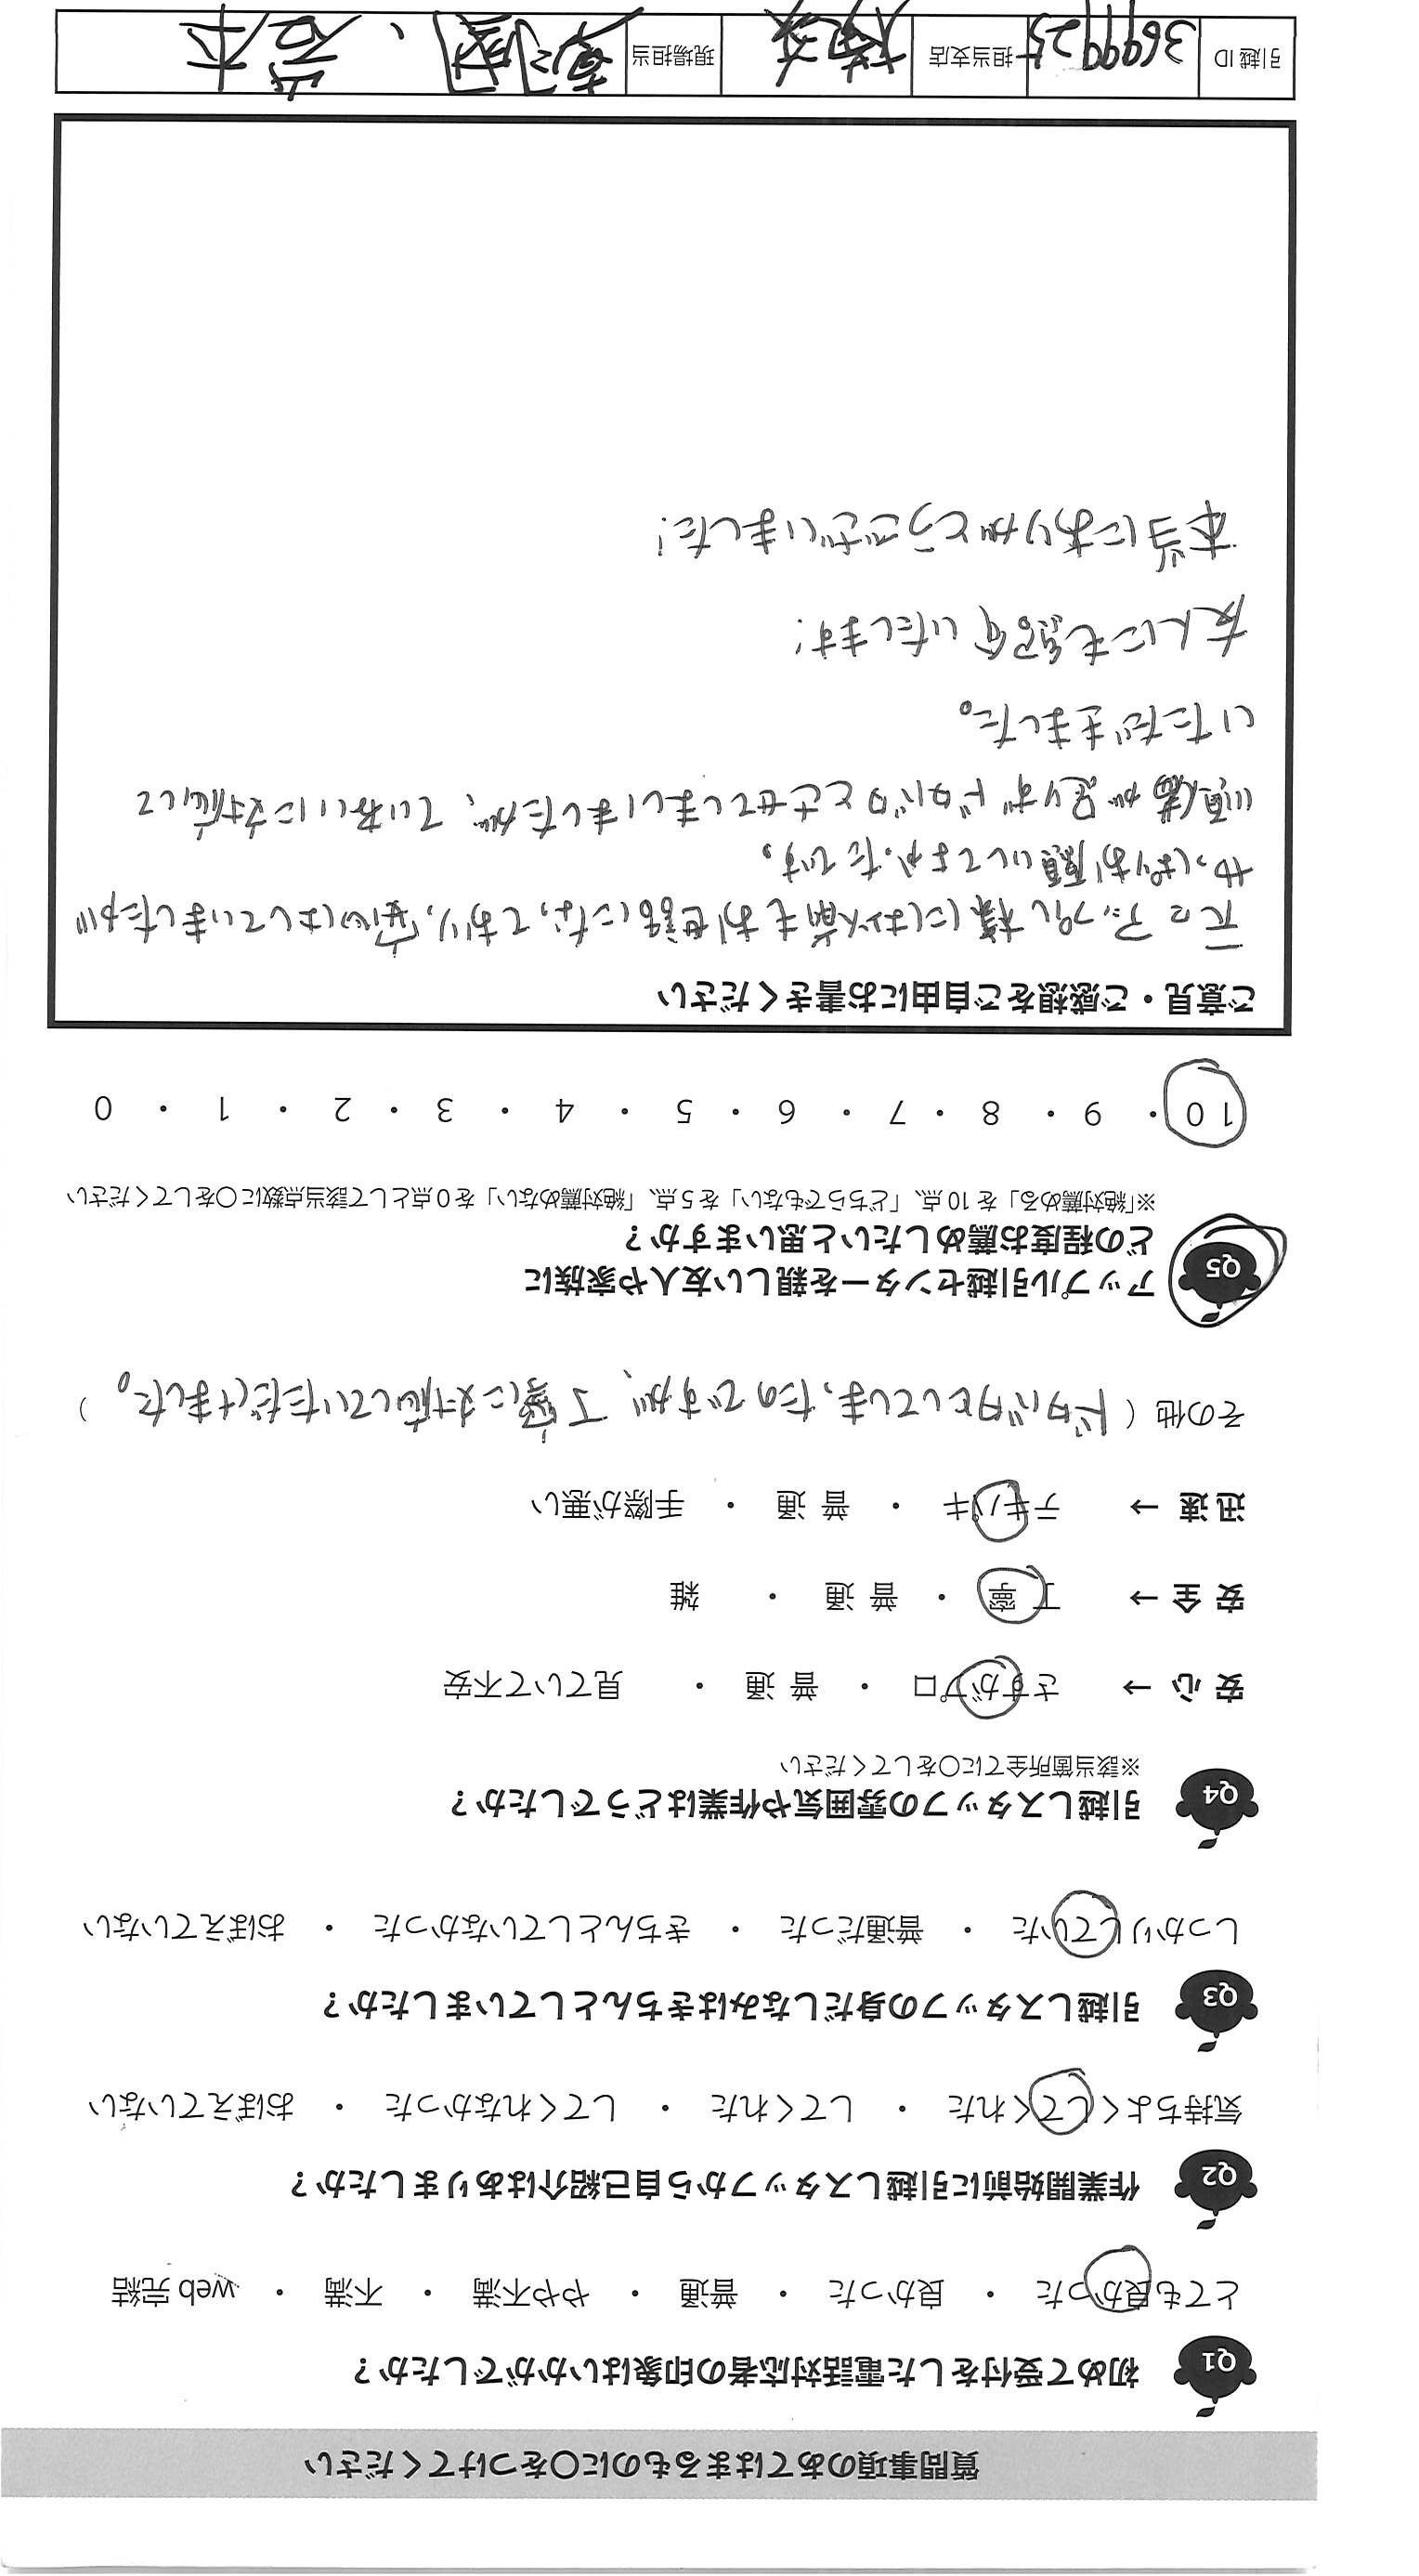 質問事項のあてはまるものに〇をつけてください
Q1 初めて受付をした電話対応者の印象はいかがでしたか？
とても良かった ・ 良かった ・ 普通 ・ やや不満 ・ 不満 ・ web 完結
Q2 作業開始前に引越しスタッフから自己紹介はありましたか？
気持ちよくしてくれた ・ してくれた ・ してくれなかった ・ おぼえていない
Q3 引越しスタッフの身だしなみはきちんとしていましたか？
しっかりしていた ・ 普通だった ・ きちんとしていなかった ・ おぼえていない
Q4 引越しスタッフの雰囲気や作業はどうでしたか？
※該当箇所全てに〇をしてください
安心 → さすがプロ ・ 普通 ・ 見ていて不安
安全 → 丁寧 ・ 普通 ・ 雑
迅速 → テキパキ ・ 普通 ・ 手際が悪い
その他（ドタバタとしてしまったのですが、丁寧に対応していただけました。）
Q5 アップル引越センターを親しい友人や家族に
どの程度お薦めしたいと思いますか？
※「絶対薦める」を10点、「どちらでもない」を5点、「絶対薦めない」を0点として該当点数に〇をしてください
10 ・ 9 ・ 8 ・ 7 ・ 6 ・ 5 ・ 4 ・ 3 ・ 2 ・ 1 ・ 0
ご意見・ご感想をご自由にお書きください
元々アップル様には以前もお世話になっており、安心はしていましたが
やっぱりお願いしてよかったです。
準備が足りずドタバタとさせてしまいましたが、ていねいに対応して
いただきました。
友人にも紹介いたします！
本当にありがとうございました！
引越ID 3699925 担当支店 横浜 現場担当 、岩本